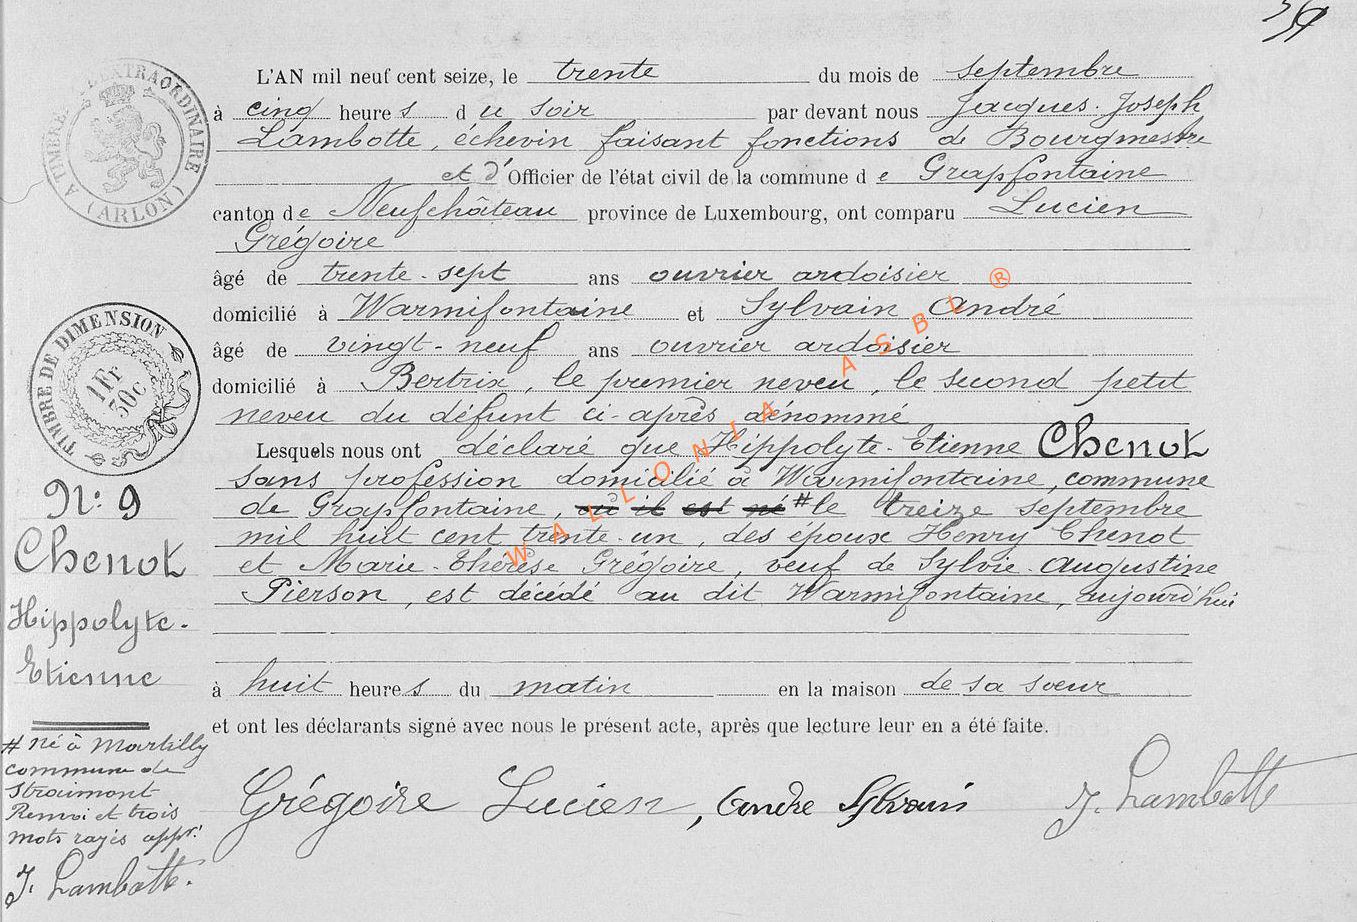 A TIMBRE L'EXTRAORDINAIRE
(ARLON)
L'AN mil neuf cent seize, le trente du mois de septembre
à cinq heures du soir par devant nous Jacques-Joseph
Lambotte, échevin faisant fonctions de Bourgmestre
et d'Officier de l'état civil de la commune de Grapfontaine
canton de Neufchâteau province de Luxembourg, ont comparu Lucien
Grégoire
âgé de trente-sept ans ouvrier ardoisier
domicilié à Warmifontaine et Sylvain André
âgé de vingt-neuf ans ouvrier ardoisier
domicilié à Bertrix, le premier neveu, le second petit
neveu du défunt ci-après dénommé
Lesquels nous ont déclaré que Hippolyte-Etienne Chenot
sans profession domicilié à Warmifontaine, commune
de Grapfontaine, où il est né # le treize septembre
mil huit cent trente-un, des époux Henry Chenot
et Marie-Thérèse Grégoire, veuf de Sylvie-Augustine
Pierson, est décédé au dit Warmifontaine, aujourd'hui
à huit heures du matin en la maison de sa soeur
et ont les déclarants signé avec nous le présent acte, après que lecture leur en a été faite.
Grégoire Lucien, André Sylvain J. Lambotte
TIMBRE DE DIMENSION
1Fr
30c
N: 9
Chenot
Hippolyte-
Etienne
# né à Martilly
commune de
Straimont
Renvoi et trois
mots rayés appr.
J. Lambotte.
WALLONIA ASBL ®